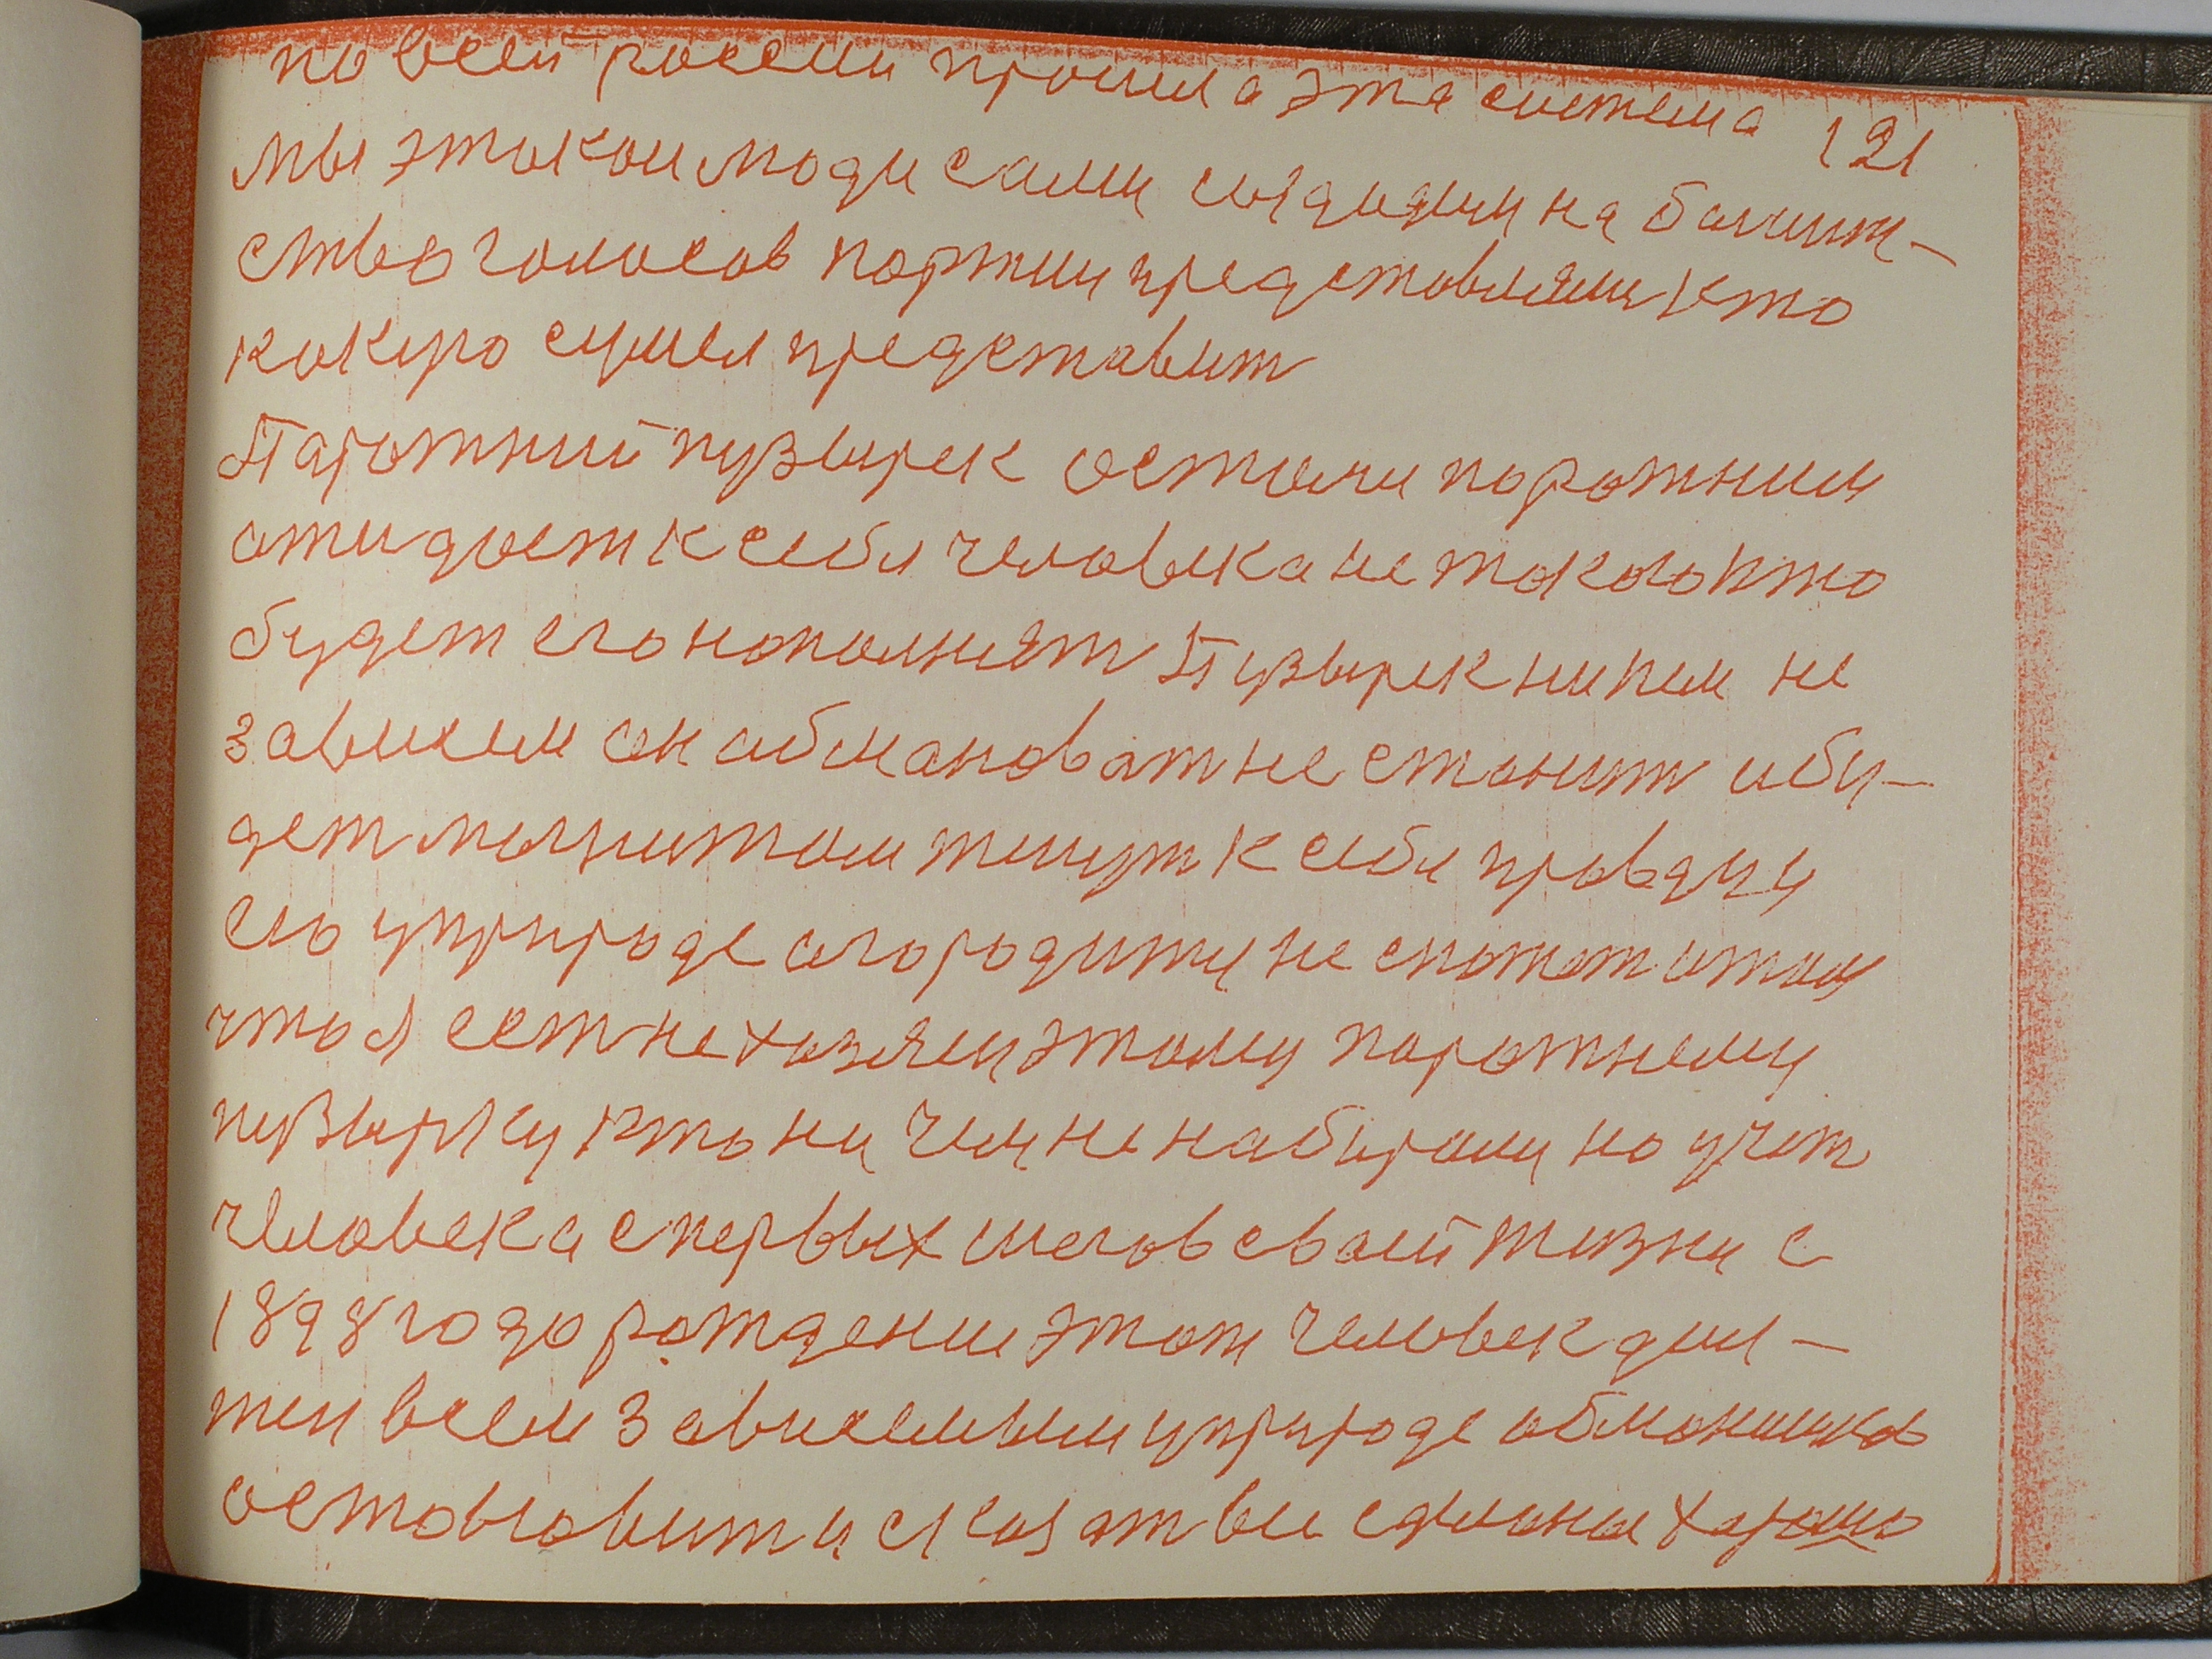 по всей россии прошла эта система 121
мы этокои моди сами создали на болшин-
ство голосов портии представляли кто
кокую сумел представит
Паротний пузырек остали поротним
отидает к себя человека не токого кто
будет его нополнят Пузырек ни кем не
зависем он обмановат не станит и бу-
дет магнитом тянут к себя провду у
ево у природе огородит и не сможет и тому
что я ест не хозяен этому поротнему
пузырку кто ни чем не набирали но учет
человека с первых шегов своей жизни с
1898 года рождении этот человек дил-
жен всем зависемым у природе обманщиков
остоновит и сказат вы сделоны хорошо